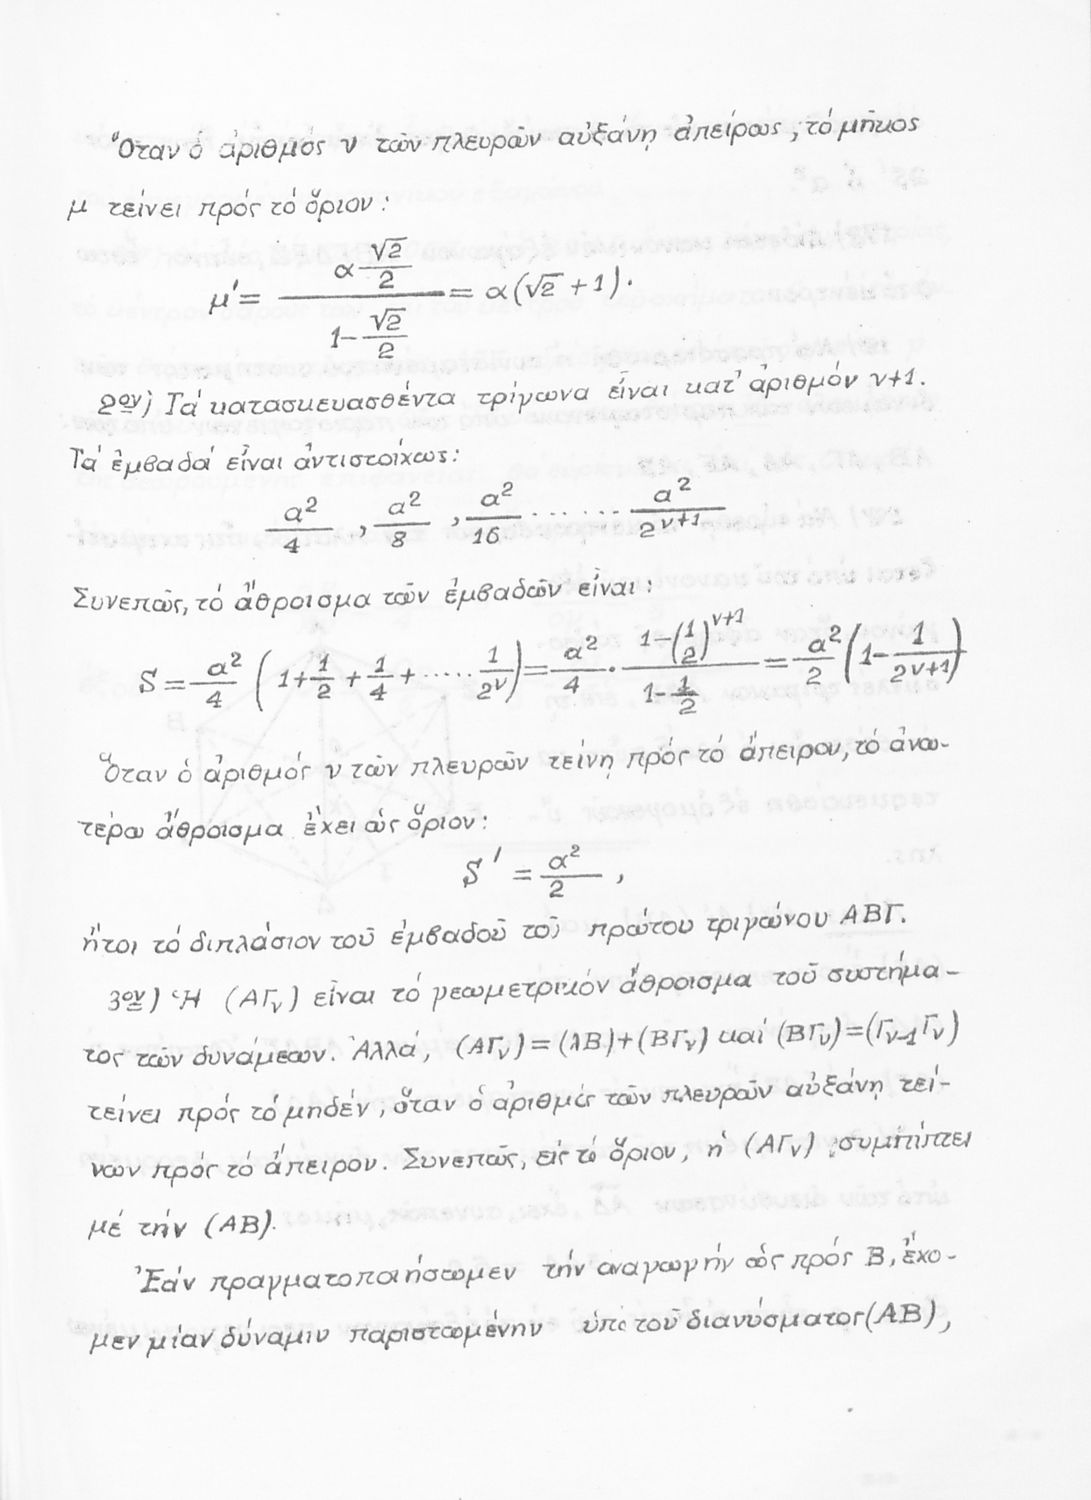 Ὅταν ὁ ἀριθμός ν τῶν πλευρῶν αὐξάνῃ ἀπείρως, τό μῆκος
μ τείνει πρός τό ὅριον:
μ' = (α √2/2) / (1 - √2/2) = α(√2 + 1).
2ον) Τά κατασκευασθέντα τρίγωνα εἶναι κατ' ἀριθμόν ν+1.
Τά ἐμβαδά εἶναι ἀντιστοίχως:
α²/4 , α²/8 , α²/16 ...... α²/2^(ν+1)
Συνεπῶς, τό ἄθροισμα τῶν ἐμβαδῶν εἶναι:
S = α²/4 (1 + 1/2 + 1/4 + ..... 1/2^ν) = α²/4 · (1-(1/2)^(ν+1))/(1-1/2) = α²/2 (1 - 1/2^(ν+1))
Ὅταν ὁ ἀριθμός ν τῶν πλευρῶν τείνῃ πρός τό ἄπειρον, τό ἀνω-
τέρω ἄθροισμα ἔχει ὡς ὅριον:
S' = α²/2 ,
ἤτοι τό διπλάσιον τοῦ ἐμβαδοῦ τοῦ πρώτου τριγώνου ΑΒΓ.
3ον) Ἡ (ΑΓν) εἶναι τό γεωμετρικόν ἄθροισμα τοῦ συστήμα-
τος τῶν δυνάμεων. Ἀλλά, (ΑΓν) = (λΒ)+(ΒΓν) καί (ΒΓν)=(Γν-1Γν)
τείνει πρός τό μηδέν, ὅταν ὁ ἀριθμός τῶν πλευρῶν αὐξάνῃ τεί-
νων πρός τό ἄπειρον. Συνεπῶς, εἰς τό ὅριον, ἡ (ΑΓν) συμπίπτει
μέ τήν (ΑΒ).
Ἐάν πραγματοποιήσωμεν τήν ἀναγωγήν ὡς πρός Β, ἔχο-
μεν μίαν δύναμιν παριστωμένην ὑπό τοῦ διανύσματος (ΑΒ),